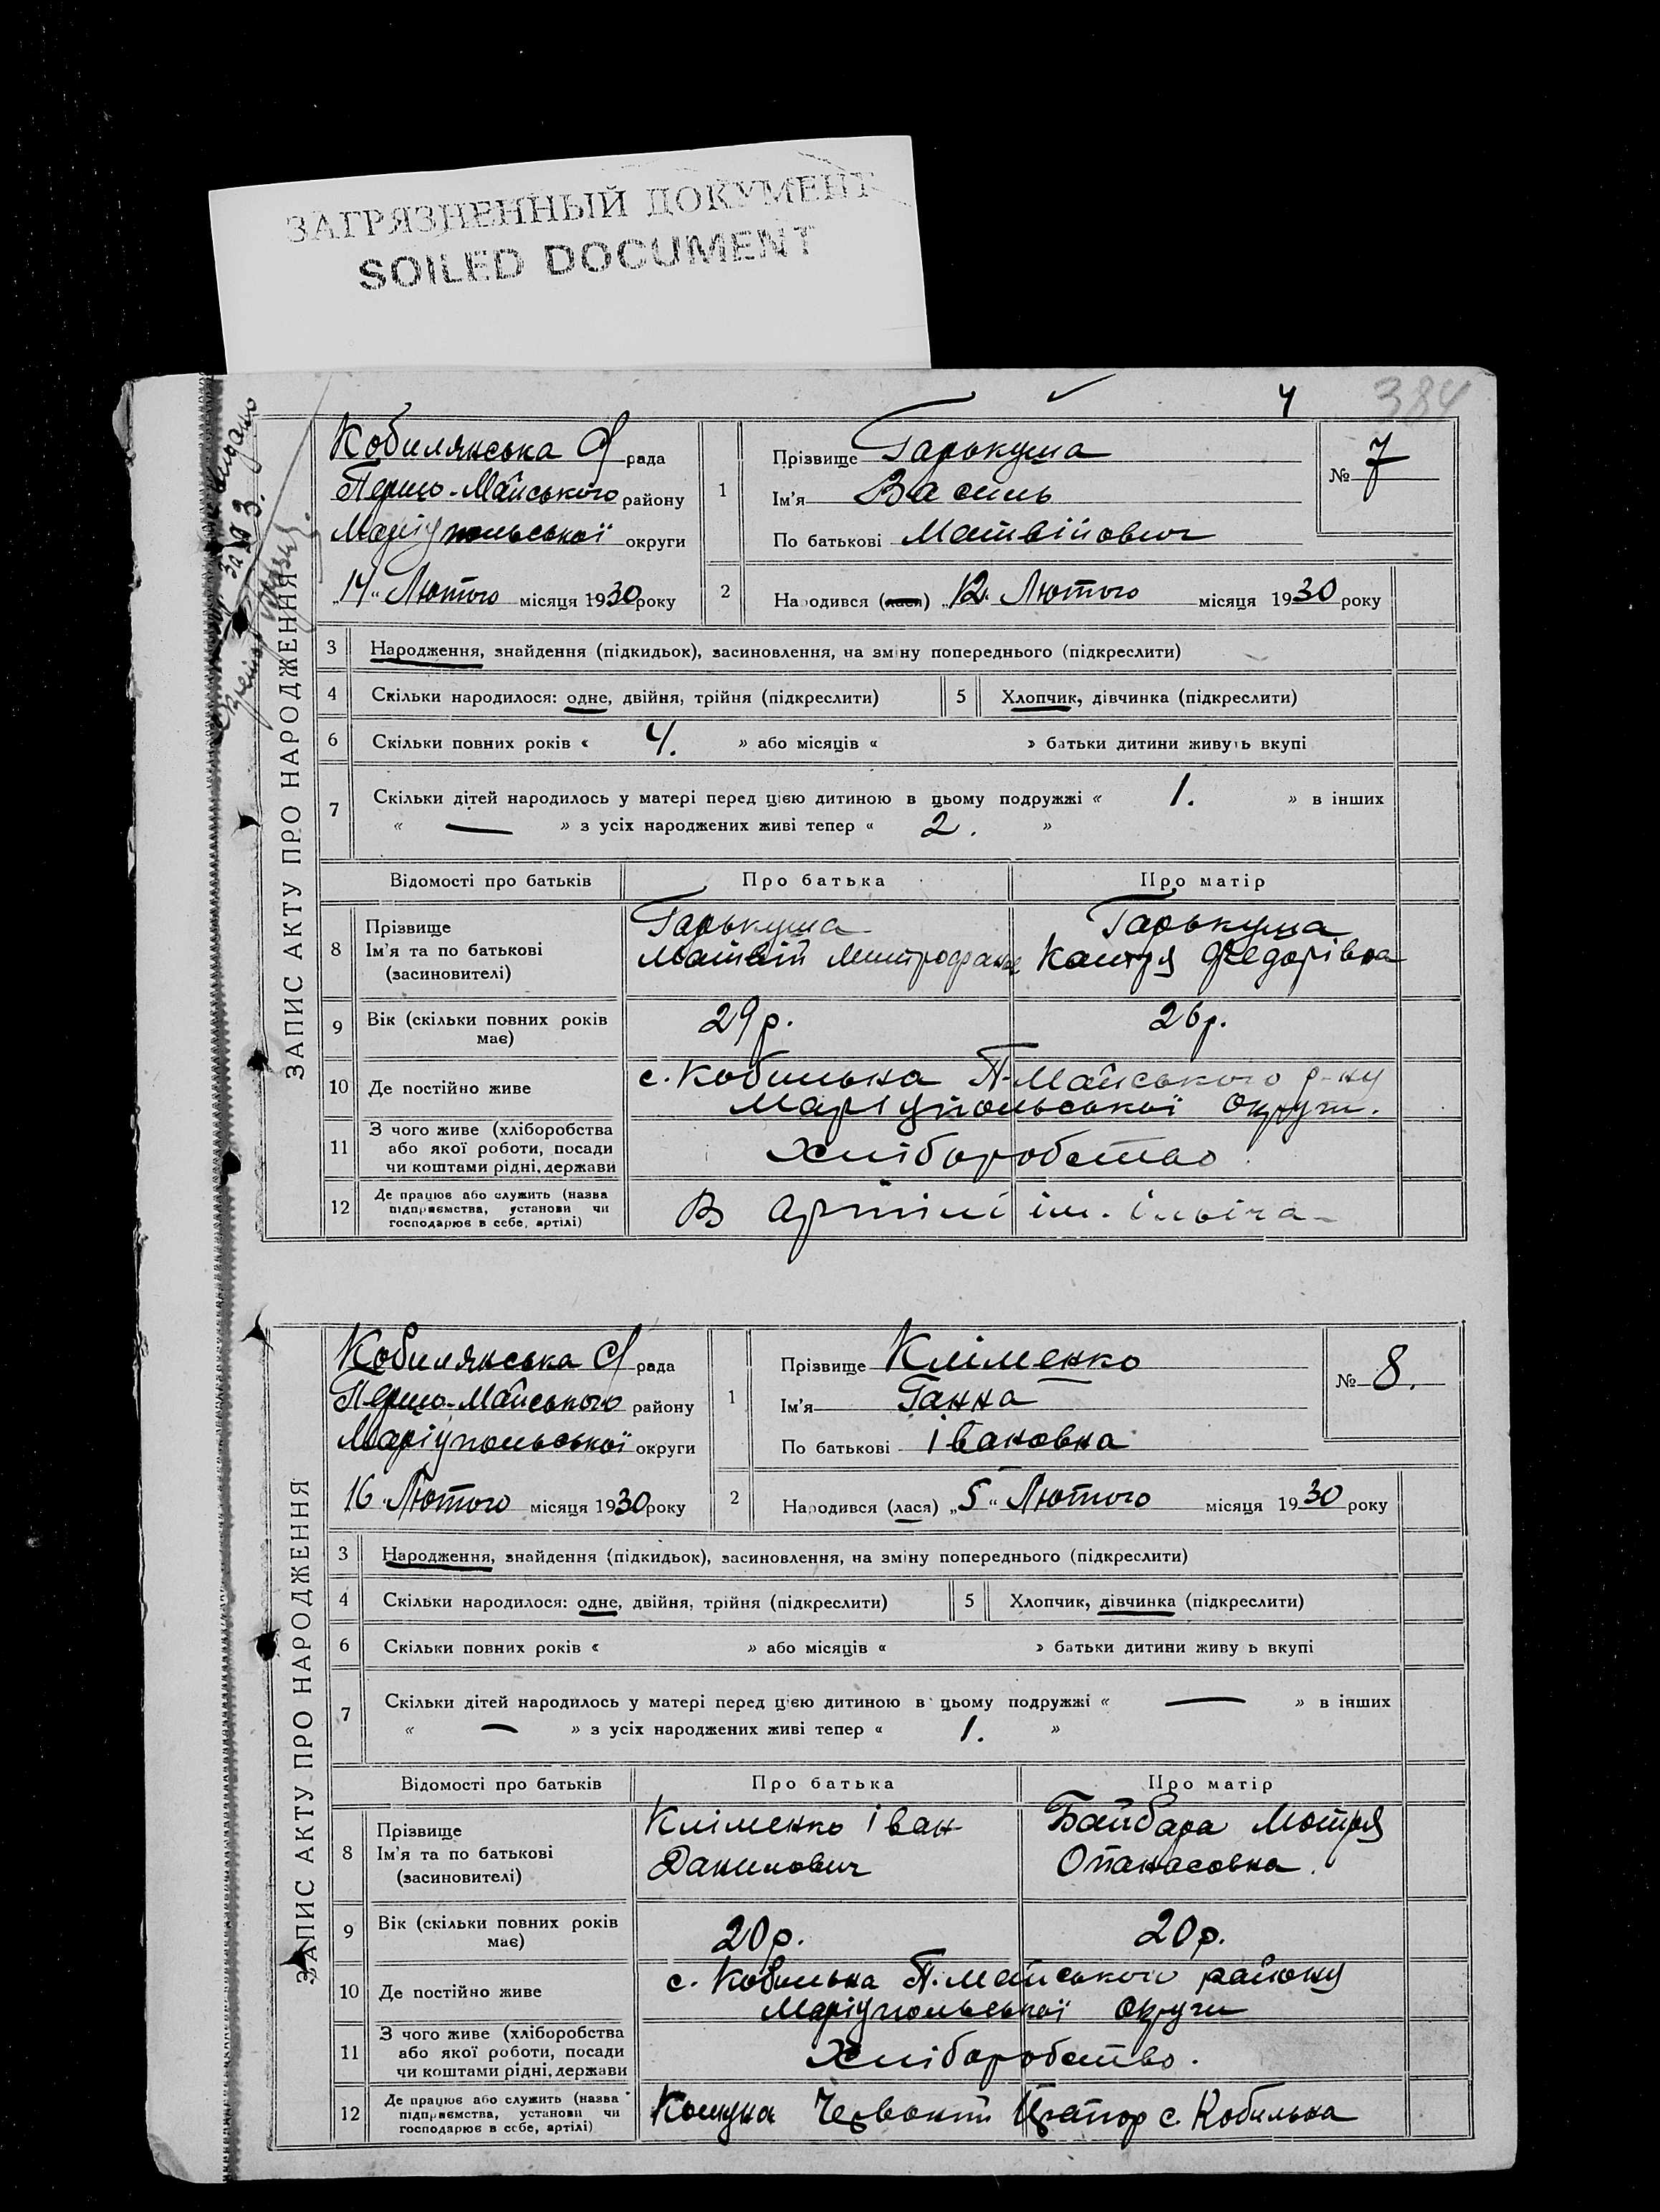 ЗАГРЯЗНЕННЫЙ ДОКУМЕНТ
SOILED DOCUMENT
4
384
ЗАПИС АКТУ ПРО НАРОДЖЕННЯ
Кобилянська С/рада
Першо-Майського району
Маріупольської округи
„14“ Лютого місяця 1930 року
1
Прізвище Гарькуша
Ім'я Василь
По батькові Матвійович
№ 7
2
Народився (лася) „12. Лютого місяця 1930 року
3 Народження, знайдення (підкидьок), засиновлення, на зміну попереднього (підкреслити)
4 Скільки народилося: одне, двійня, трійня (підкреслити) 5 Хлопчик, дівчинка (підкреслити)
6 Скільки повних років « 4. » або місяців « » батьки дитини живуть вкупі
7 Скільки дітей народилось у матері перед цією дитиною в цьому подружжі « 1. » в інших
« — » з усіх народжених живі тепер « 2. »
Відомості про батьків Про батька Про матір
8 Прізвище Ім'я та по батькові (засиновителі)
Гарькуша Матвій
Гарькуша Федорівна
9 Вік (скільки повних років має) 29 р. 26 р.
10 Де постійно живе с. Кобилька П-Майського р-ну
Маріупольської Округи.
11 З чого живе (хліборобства або якої роботи, посади чи коштами рідні, держави Хліборобство
12 Де працює або служить (назва підприємства, установи чи господарює в себе, артілі) В артілі ім. Ільіча
ЗАПИС АКТУ ПРО НАРОДЖЕННЯ
Кобилянська С/рада
Першо-Майського району
Маріупольської округи
16. Лютого місяця 1930 року
1
Прізвище Кліменко
Ім'я Ганна
По батькові Івановна
№ 8.
2
Народився (лася) „5“ Лютого місяця 1930 року
3 Народження, знайдення (підкидьок), засиновлення, на зміну попереднього (підкреслити)
4 Скільки народилося: одне, двійня, трійня (підкреслити) 5 Хлопчик, дівчинка (підкреслити)
6 Скільки повних років « » або місяців « » батьки дитини живу ь вкупі
7 Скільки дітей народилось у матері перед цією дитиною в цьому подружжі « — » в інших
« — » з усіх народжених живі тепер « 1. »
Відомості про батьків Про батька Про матір
8 Прізвище Ім'я та по батькові (засиновителі)
Кліменко Іван Данилович
Байбара Мотря Опанасовна.
9 Вік (скільки повних років має) 20 р. 20 р.
10 Де постійно живе с. Кобилька П. Майського району
Маріупольської Округи
11 З чого живе (хліборобства або якої роботи, посади чи коштами рідні, держави Хліборобство.
12 Де працює або служить (назва підприємства, установи чи господарює в себе, артілі) Комуна Червоний Прапор с. Кобилька